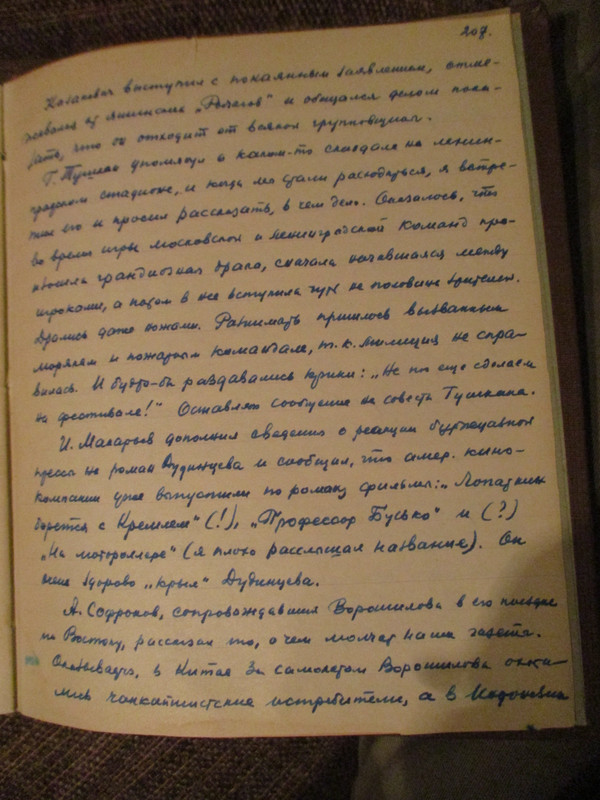 207.
выступил с покаянным заявлением, отме-
и обещался делом пока-
зать, что он отходит от всякой групповщины.
Г. Пушкин упомянул о каком-то скандале на ленин-
градском стадионе, и когда мы стали расходиться, я встре-
тил его и просил рассказать, в чем дело. Оказалось, что
во время игры московской и ленинградской команд про-
изошла грандиозная драка, сначала начавшаяся между
игроками, а потом в нее вступила чуть не половина зрителей.
Дрались даже ножами. Разнимать пришлось вызванным
морякам и пожарным командам, т.к. милиция не спра-
вилась. И будто-бы раздавались крики: „Не то еще сделаем
на фестивале!" Оставляю сообщение на совести Пушкина.
И. Макарьев дополнил сведения о реакции буржуазной
прессы на роман Дудинцева и сообщил, что амер. кино-
компании уже выпустили по роману фильмы: „Лопаткин
борется с Кремлем" (!), „Профессор Бусько" и (?)
„На мотороллере" (я плохо расслышал название). Он
очень здорово „крыл" Дудинцева.
А. Софронов, сопровождавший Ворошилова в его поездке
по Востоку, рассказал то, о чем молчат наши газеты.
Оказывается, в Китае за самолетом Ворошилова охоти-
лись чанкайшистские истребители, а в Индонезии